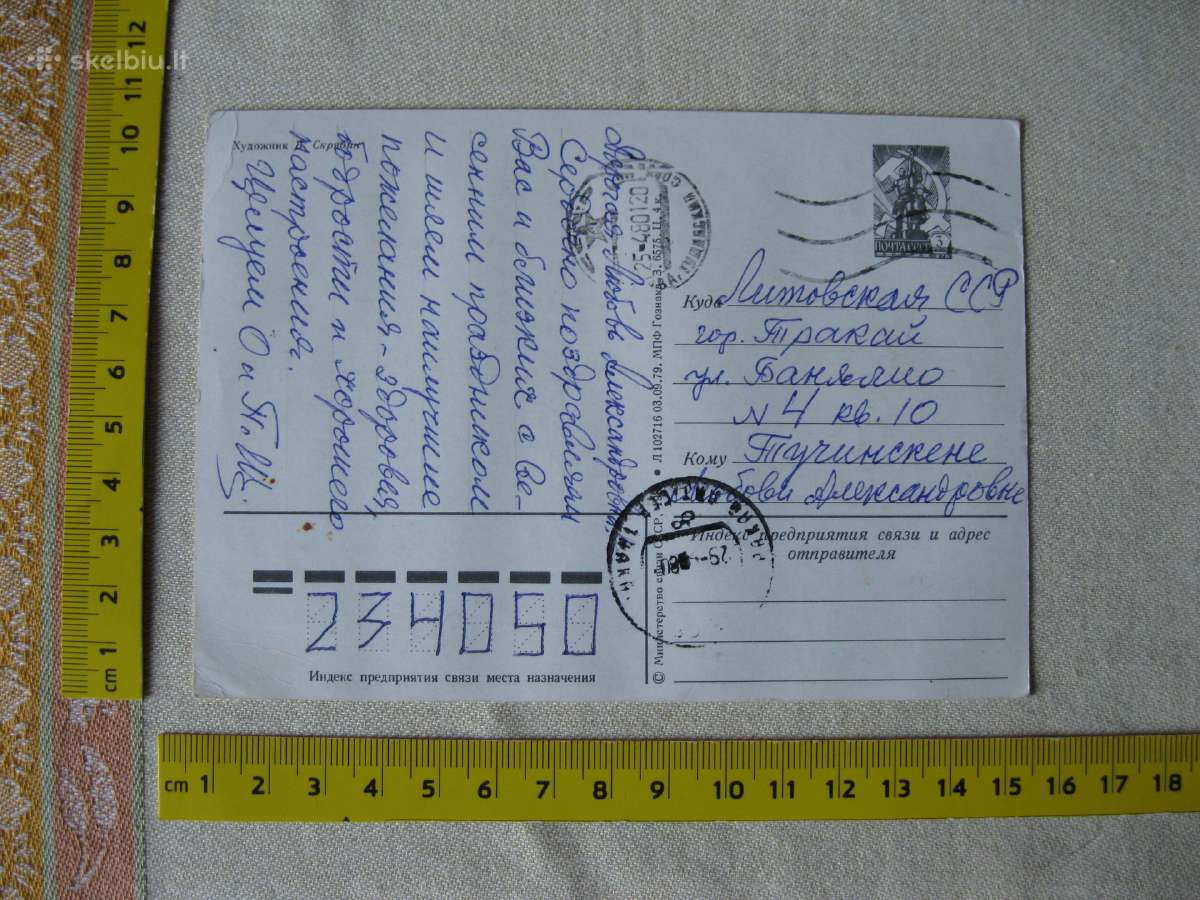 skelbiu.lt
Художник В. Скрябин
Дорогая Любовь Александровна,
Сердечно поздравляем
Вас и близких с Ве-
сенним праздником
и шлем наилучшие
пожелания - здоровья,
бодрости и хорошего
настроения.
Целуем О и П. Щ.
25-480120
ПОЧТА СССР
Куда Литовская ССР
гор. Тракай
ул. Банялио
N 4 кв. 10
Кому Тучинскене
Любови Александровне
Индекс предприятия связи и адрес
отправителя
234050
Индекс предприятия связи места назначения
© Министерство связи СССР,
Л 102716 03.09.79. МПФ Гознака. З. 6575. Ц. 4 к.
cm 1 2 3 4 5 6 7 8 9 10 11 12
cm 1 2 3 4 5 6 7 8 9 10 11 12 13 14 15 16 17 18